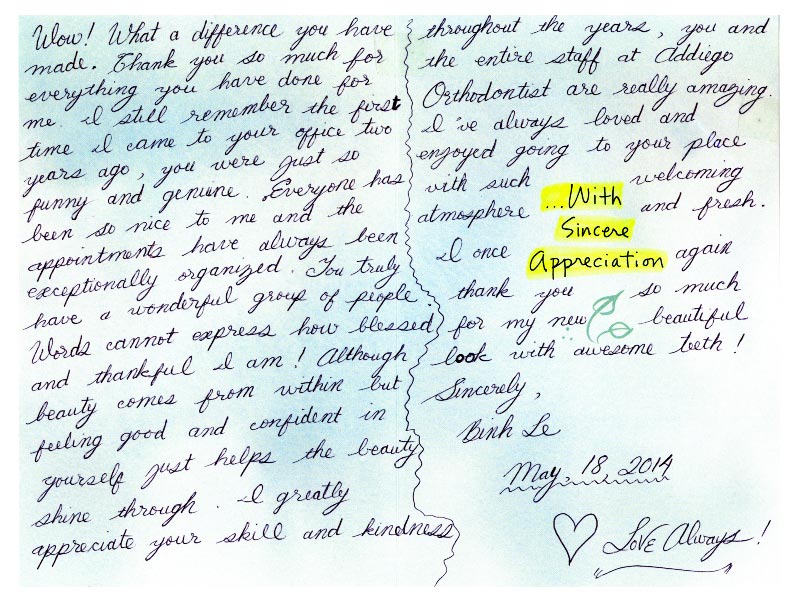 Wow! What a difference you have
made. Thank you so much for
everything you have done for
me I still remember the first
time I came to your office two
years ago, you were just so
funny and genuine. Everyone has
been so nice to me and the
appointments have always been
exceptionally organized. You truly
have a wonderful group of people.
Words cannot express how blessed
and thankful I am! Although
beauty comes from within but
feeling good and confident in
yourself just helps the beauty
shine through. I greatly
appreciate your skill and kindness
throughout the years, you and
the entire staff at Addiego
Orthodontist are really amazing.
I've always loved and
enjoyed going to your place
with such welcoming
atmosphere and fresh.
...With
Sincere
Appreciation
I once again
thank you so much
for my new beautiful
look with awesome teeth!
Sincerely,
Binh Le
May, 18, 2014
Love Always!